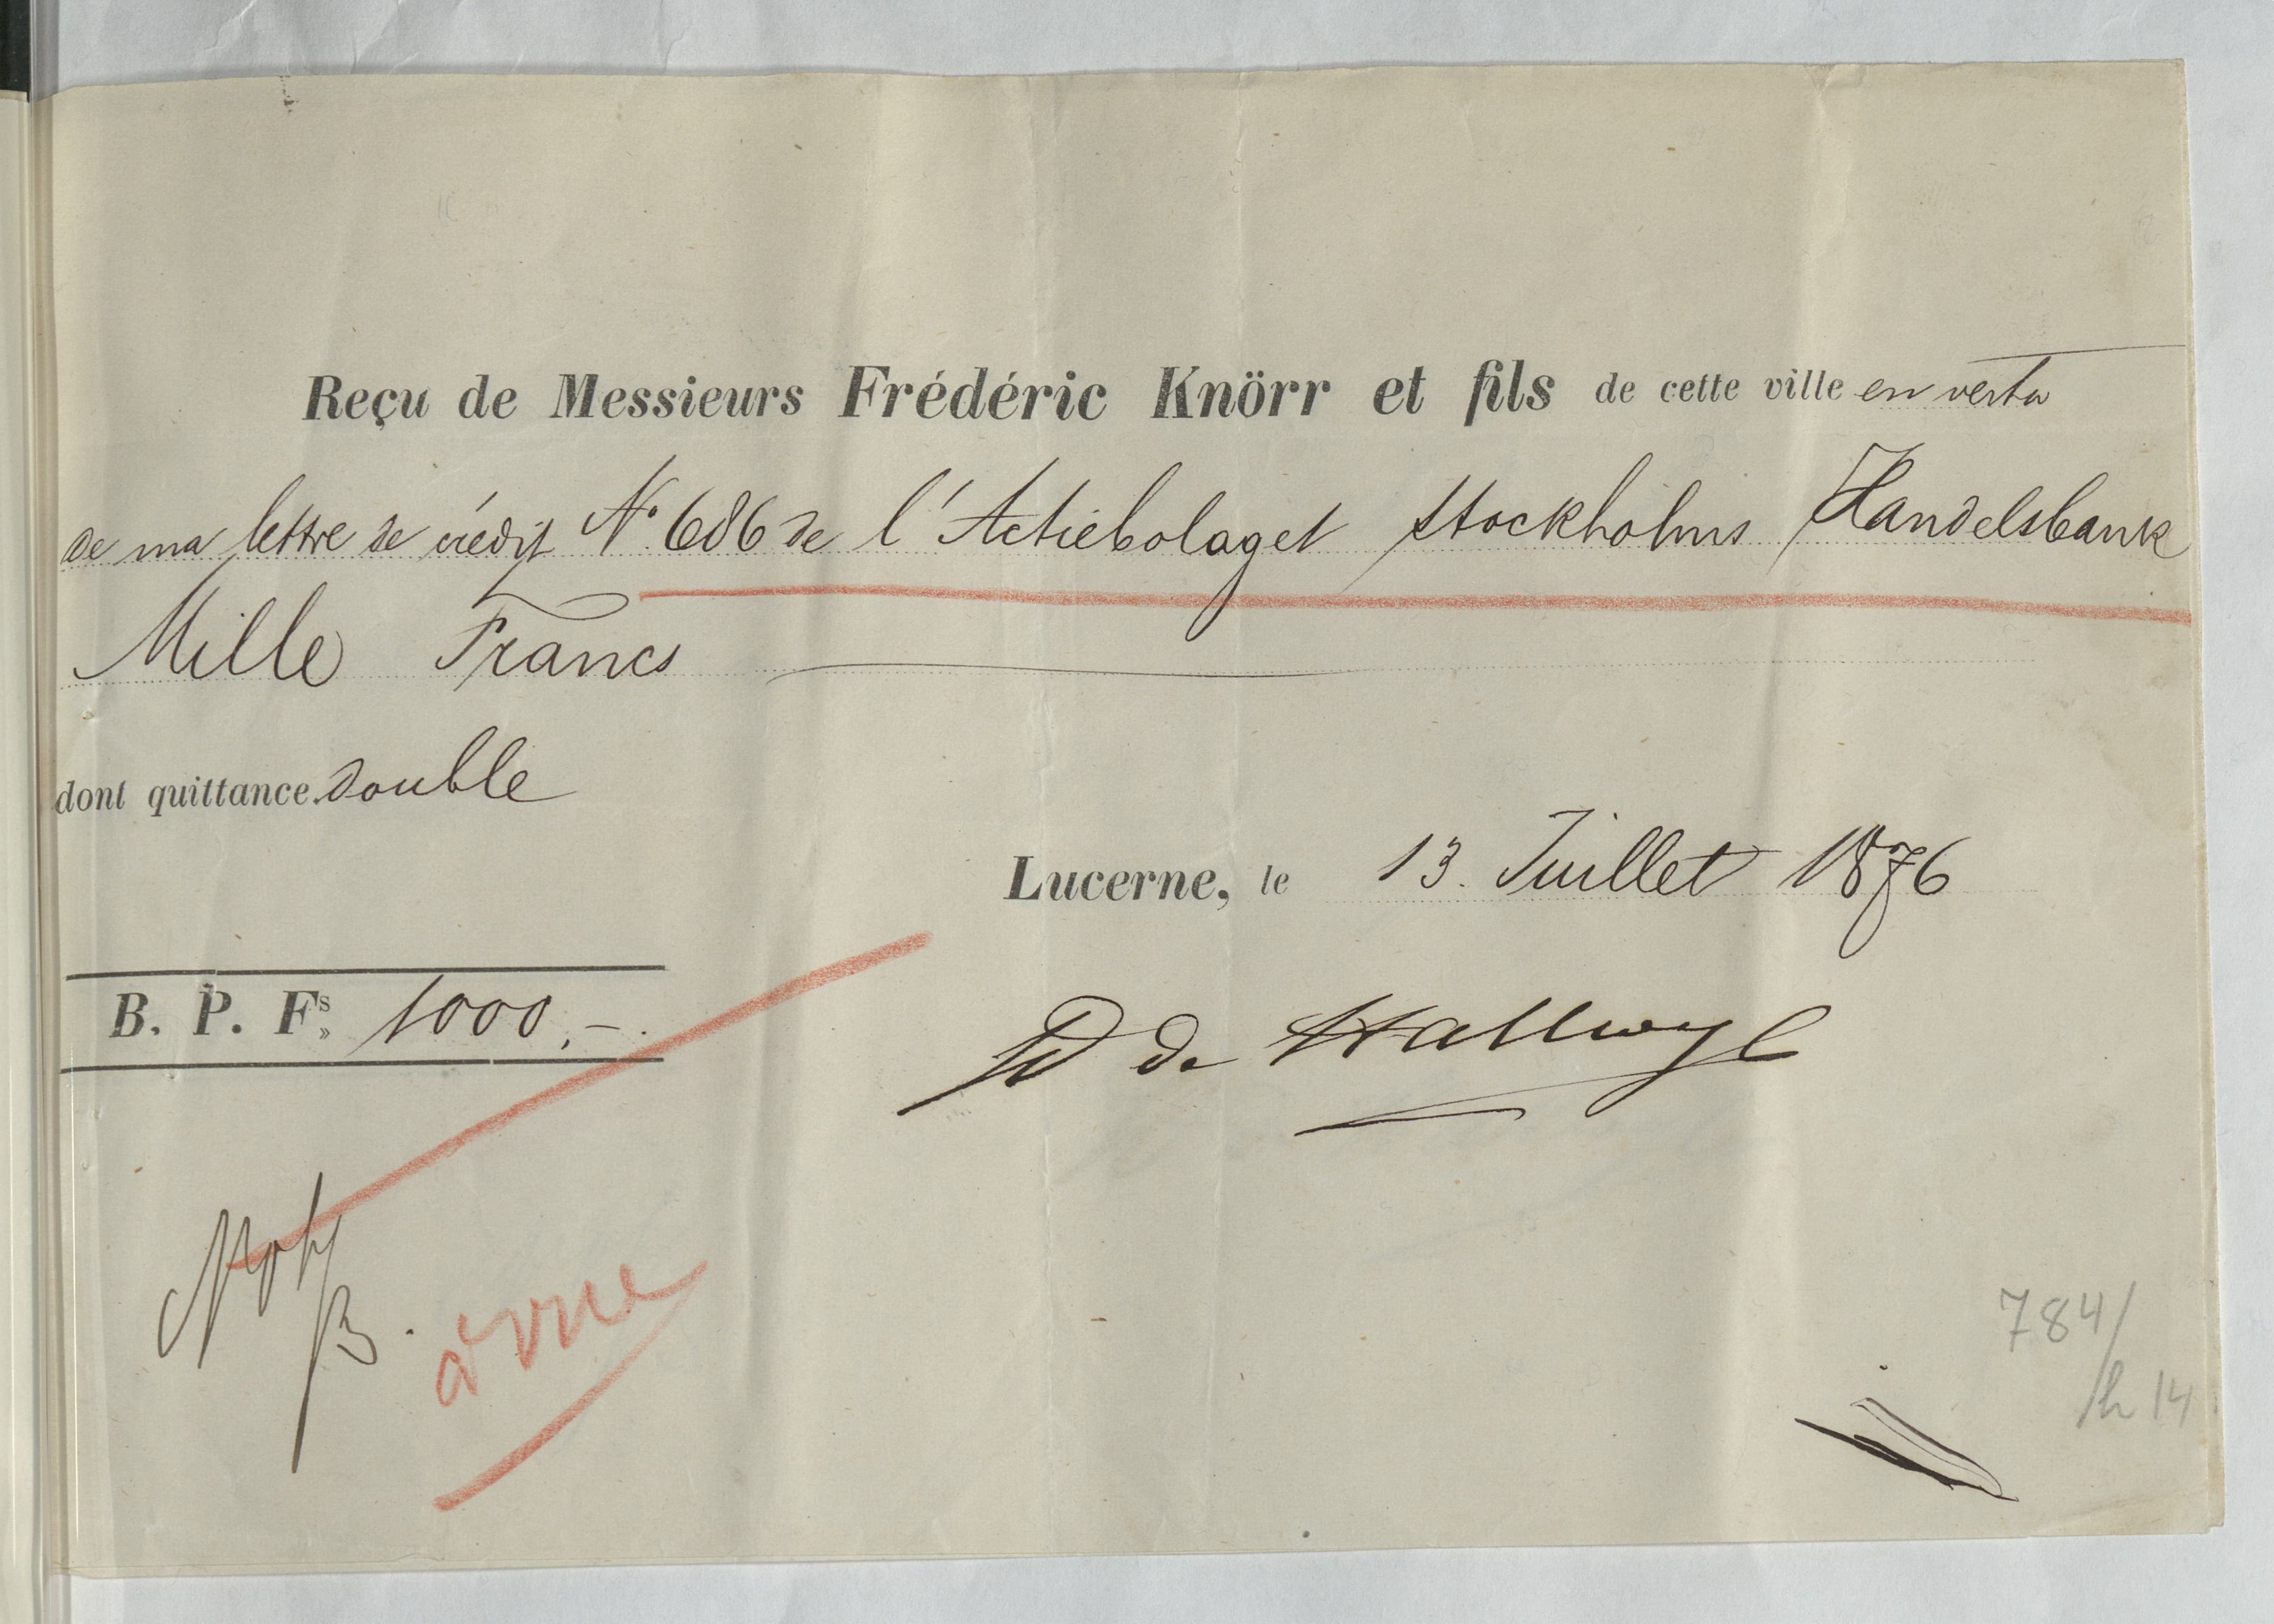 Reçu de Messieurs Frédéric Knörr et fils de cette ville en vertu
de ma lettre de crédit No 686 de l'Actiebolaget Stockholms Handelsbank
Mille Francs
dont quittance double
Lucerne, le 13. Juillet 1876
B. P. Fs 1000,-.
W de Hallwyl
B.
784/
h 14